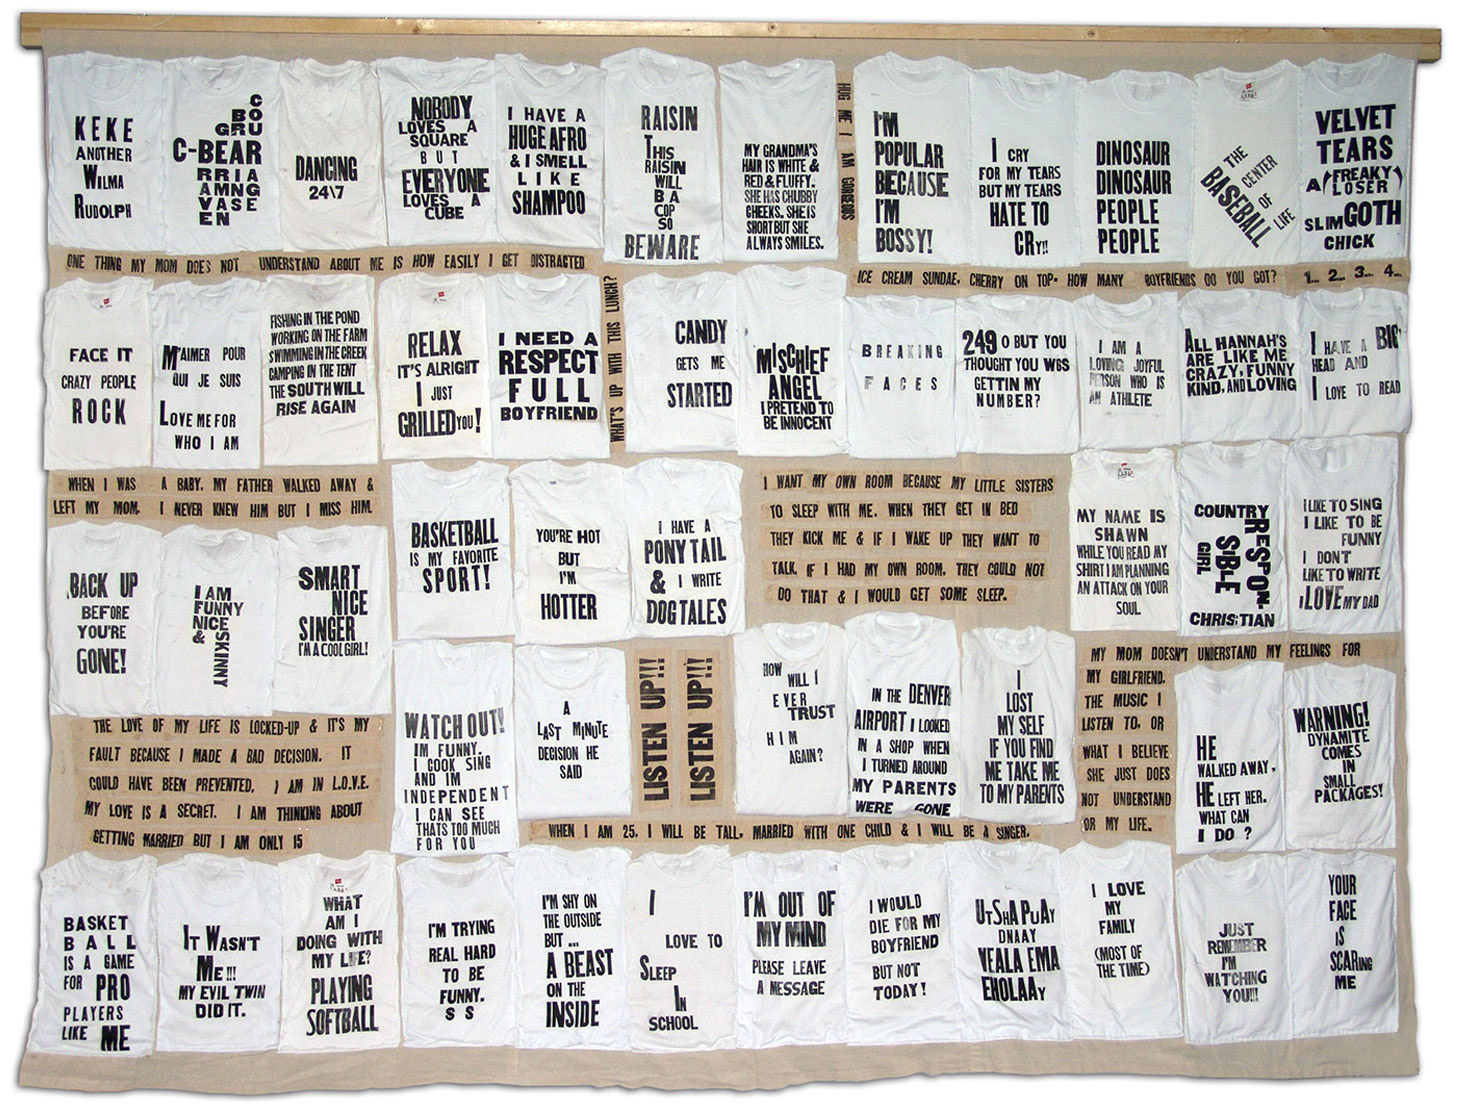 KEKE
ANOTHER
WILMA
RUDOLPH
C
BO
GRU
C-BEAR
RRIA
AMNG
VASE
EN
DANCING
24\7
NOBODY
LOVES A
SQUARE
BUT
EVERYONE
LOVES A
CUBE
I HAVE A
HUGE AFRO
& I SMELL
LIKE
SHAMPOO
RAISIN
THIS
RAISIN
WILL
B A
COP
SO
BEWARE
MY GRANDMA'S
HAIR IS WHITE &
RED & FLUFFY.
SHE HAS CHUBBY
CHEEKS. SHE IS
SHORT BUT SHE
ALWAYS SMILES.
HUG ME I AM GORGEOUS
I'M
POPULAR
BECAUSE
I'M
BOSSY!
I CRY
FOR MY TEARS
BUT MY TEARS
HATE TO
CRY!!
DINOSAUR
DINOSAUR
PEOPLE
PEOPLE
THE
CENTER
OF
BASEBALL
LIFE
VELVET
TEARS
A (FREAKY
LOSER)
SLIM GOTH
CHICK
ONE THING MY MOM DOES NOT UNDERSTAND ABOUT ME IS HOW EASILY I GET DISTRACTED
ICE CREAM SUNDAE, CHERRY ON TOP- HOW MANY BOYFRIENDS DO YOU GOT? 1... 2... 3... 4...
FACE IT
CRAZY PEOPLE
ROCK
M'AIMER POUR
QUI JE SUIS
LOVE ME FOR
WHO I AM
FISHING IN THE POND
WORKING ON THE FARM
SWIMMING IN THE CREEK
CAMPING IN THE TENT
THE SOUTH WILL
RISE AGAIN
RELAX
IT'S ALRIGHT
I JUST
GRILLED YOU!
I NEED A
RESPECT
FULL
BOYFRIEND
WHAT'S UP WITH THIS LUNCH?
CANDY
GETS ME
STARTED
MISCHIEF
ANGEL
I PRETEND TO
BE INNOCENT
BREAKING
FACES
249 O BUT YOU
THOUGHT YOU W6S
GETTIN MY
NUMBER?
I AM A
LOVING JOYFUL
PERSON WHO IS
AN ATHLETE
ALL HANNAH'S
ARE LIKE ME
CRAZY, FUNNY
KIND, AND LOVING
I HAVE A BIG
HEAD AND
I LOVE TO READ
WHEN I WAS A BABY, MY FATHER WALKED AWAY &
LEFT MY MOM. I NEVER KNEW HIM BUT I MISS HIM.
BASKETBALL
IS MY FAVORITE
SPORT!
YOU'RE HOT
BUT
I'M
HOTTER
I HAVE A
PONY TAIL
& I WRITE
DOGTALES
I WANT MY OWN ROOM BECAUSE MY LITTLE SISTERS
TO SLEEP WITH ME. WHEN THEY GET IN BED
THEY KICK ME & IF I WAKE UP THEY WANT TO
TALK. IF I HAD MY OWN ROOM, THEY COULD NOT
DO THAT & I WOULD GET SOME SLEEP.
MY NAME IS
SHAWN
WHILE YOU READ MY
SHIRT I AM PLANNING
AN ATTACK ON YOUR
SOUL
COUNTRY
RESPON-
SIBLE
GIRL
CHRISTIAN
I LIKE TO SING
I LIKE TO BE
FUNNY
I DON'T
LIKE TO WRITE
I LOVE MY DAD
BACK UP
BEFORE
YOU'RE
GONE!
I AM
FUNNY
NICE
&
SKINNY
SMART
NICE
SINGER
I'M A COOL GIRL!
MY MOM DOESN'T UNDERSTAND MY FEELINGS FOR
MY GIRLFRIEND.
THE MUSIC I
LISTEN TO, OR
WHAT I BELIEVE
SHE JUST DOES
NOT UNDERSTAND
OR MY LIFE.
THE LOVE OF MY LIFE IS LOCKED-UP & IT'S MY
FAULT BECAUSE I MADE A BAD DECISION. IT
COULD HAVE BEEN PREVENTED. I AM IN L.O.V.E.
MY LOVE IS A SECRET. I AM THINKING ABOUT
GETTING MARRIED BUT I AM ONLY 15
WATCH OUT!
IM FUNNY.
I COOK SING
AND IM
INDEPENDENT
I CAN SEE
THATS TOO MUCH
FOR YOU
A
LAST MINUTE
DECISION HE
SAID
LISTEN UP!!!
LISTEN UP!!!
HOW
WILL I
EVER
TRUST
HIM
AGAIN?
IN THE DENVER
AIRPORT I LOOKED
IN A SHOP WHEN
I TURNED AROUND
MY PARENTS
WERE GONE
I
LOST
MY SELF
IF YOU FIND
ME TAKE ME
TO MY PARENTS
HE
WALKED AWAY,
HE LEFT HER.
WHAT CAN
I DO ?
WARNING!
DYNAMITE
COMES
IN
SMALL
PACKAGES!
WHEN I AM 25, I WILL BE TALL, MARRIED WITH ONE CHILD & I WILL BE A SINGER.
BASKET
BALL
IS A GAME
FOR PRO
PLAYERS
LIKE ME
IT WASN'T
ME!!!
MY EVIL TWIN
DID IT.
WHAT
AM I
DOING WITH
MY LIFE?
PLAYING
SOFTBALL
I'M TRYING
REAL HARD
TO BE
FUNNY.
S S
I'M SHY ON
THE OUTSIDE
BUT ...
A BEAST
ON THE
INSIDE
I
LOVE TO
SLEEP
IN
SCHOOL
I'M OUT OF
MY MIND
PLEASE LEAVE
A MESSAGE
I WOULD
DIE FOR MY
BOYFRIEND
BUT NOT
TODAY!
UTSHA PUAY
DNAAY
VEALA EMA
EHOLAAY
I LOVE
MY
FAMILY
(MOST OF
THE TIME)
JUST
REMEMBER
I'M
WATCHING
YOU!!!
YOUR
FACE
IS
SCARING
ME